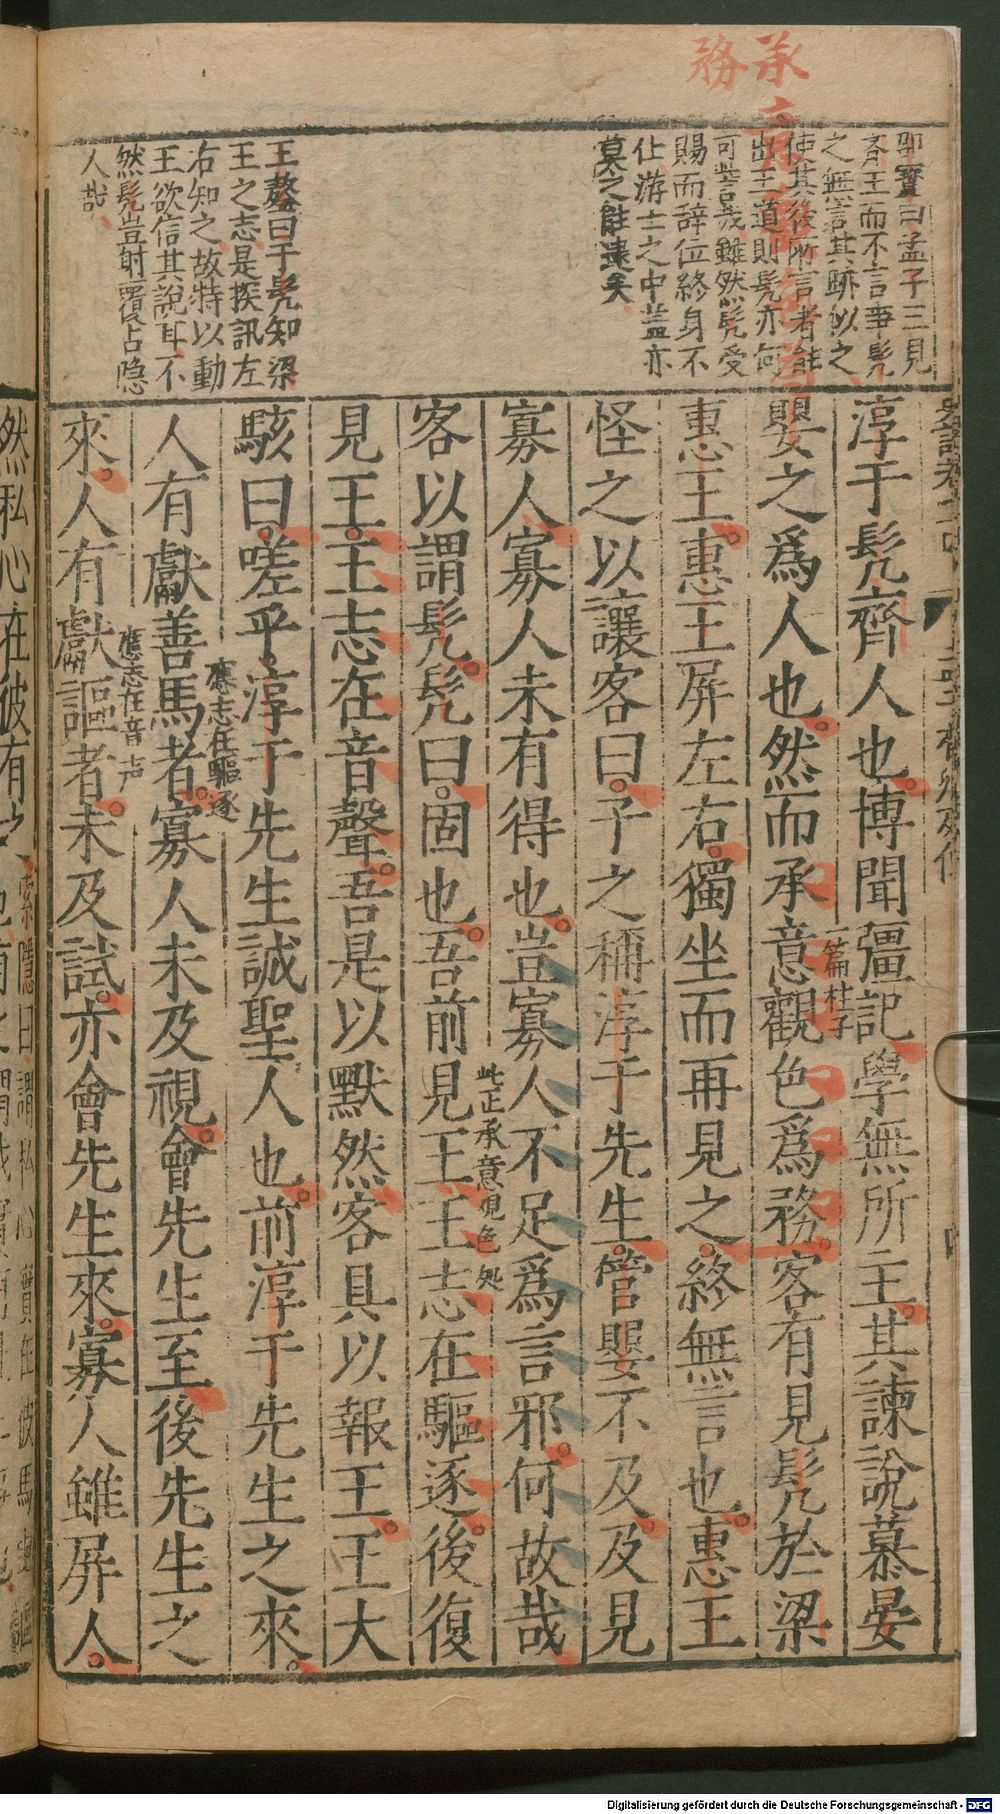 承意
務
郭寶曰孟子三見
齊王而不言事髡
之無言其跡似之
使其後所言者能
出王道則髡亦何
可訾哉雖然髡受
賜而辭位終身不
仕游士之中盖亦
慕之能遠矣
王鏊曰于髡知梁
王之志是探訊左
右知之故特以動
王欲信其說耳不
然髡豈射覆占隱
人哉
淳于髡齊人也博聞彊記學無所主其諫說慕晏
一篇柱子
嬰之爲人也然而承意觀色爲務客有見髡於梁
惠王惠王屏左右獨坐而再見之終無言也惠王
怪之以讓客曰子之稱淳于先生管嬰不及及見
寡人寡人未有得也豈寡人不足爲言邪何故哉
此正承意觀色処
客以謂髡髡曰固也吾前見王王志在驅逐後復
見王王志在音聲吾是以默然客具以報王王大
駭曰嗟乎淳于先生誠聖人也前淳于先生之來
應志在驅逐
人有獻善馬者寡人未及視會先生至後先生之
應志在音声
來人有獻謳者未及試亦會先生來寡人雖屏人
然私心在彼有之
索隱曰謂私心實在彼馬
Digitalisierung gefördert durch die Deutsche Forschungsgemeinschaft - DFG